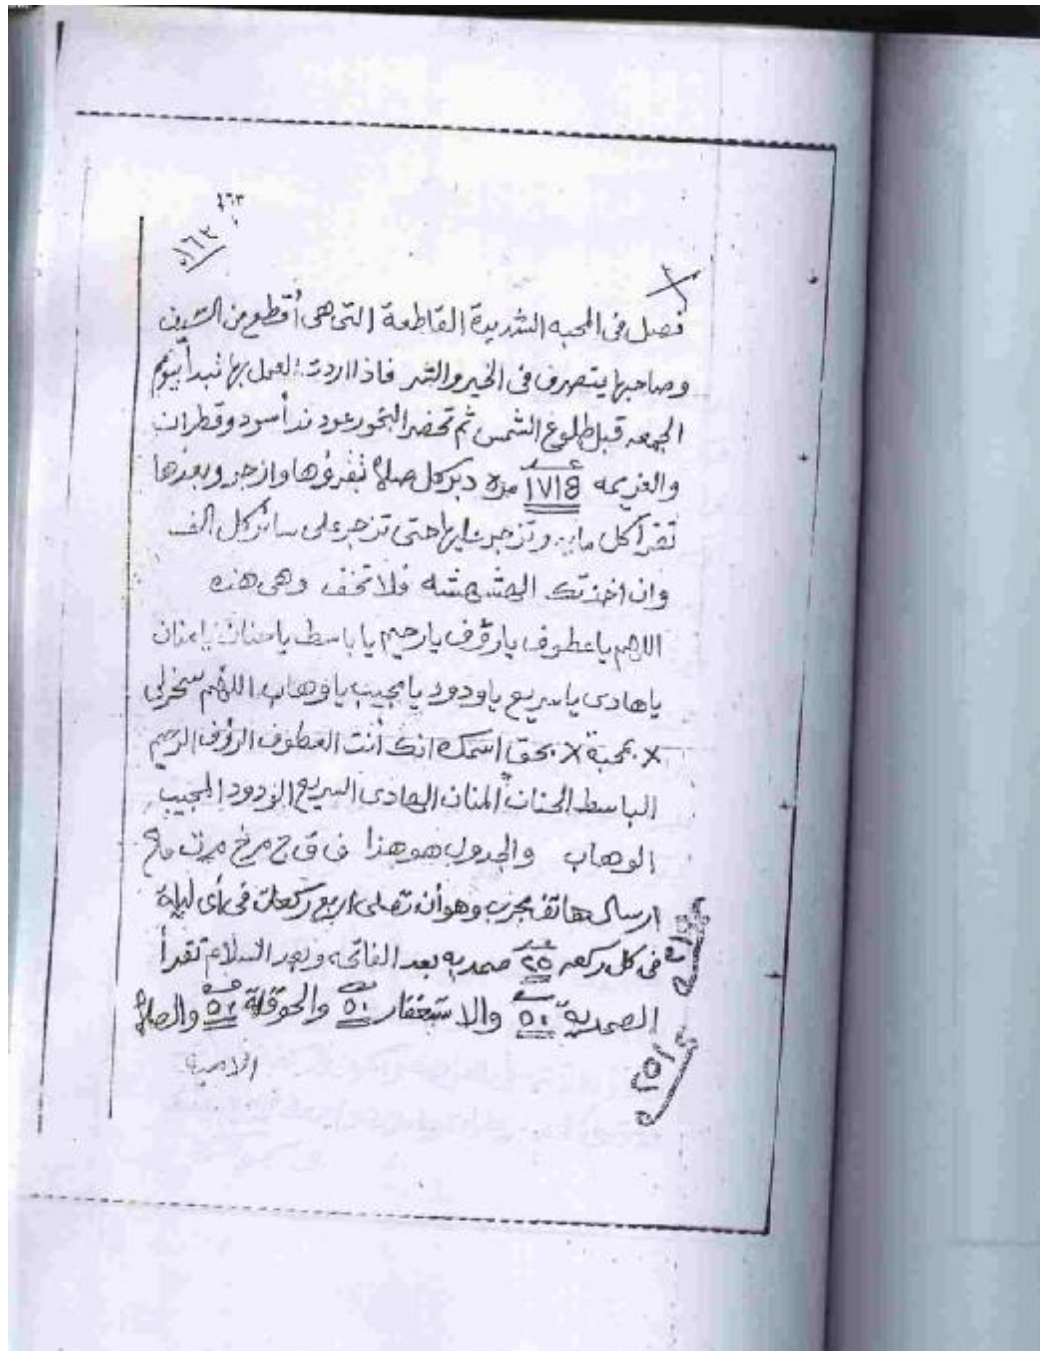 ١٦٣
١٦٣
فصل فى المحبه الشديدة القاطعة التى هى أقطع من السيف
وصاحبها يتصرف فى الخير والشر فاذا اردت العمل بها تبدأ بيوم
الجمعه قبل طلوع الشمس ثم تحضر البخور عود ند أسود وقطران
والعزيمه مره دبر كل صلاة تقرؤها وازجر وبعدها
تقرأ كل مايه وتزجر حتى تزجر على سائر كل الف
وان اخذتك الهشهشه فلا تخف وهى هذه
اللهم ياعطوف يارؤف يارحيم يا باسط ياحنان يامنان
ياهادى ياسريع ياودود يامجيب ياوهاب اللهم سخرلى
x بمحبة x بحق اسمك انك أنت العطوف الرؤف الرحيم
الباسط الحنان المنان الهادى السريع الودود المجيب
الوهاب والجدول هو هذا
ارسال هاتف مجرب وهو أن تصلى اربع ركعات فى أى ليلة
فى كل ركعه عدد ٢٥ صمديه بعد الفاتحه وبعد السلام تقرأ
الصمدية ٥١ والاستغفار ٥١ والحوقلة ٥٢ والصلاة